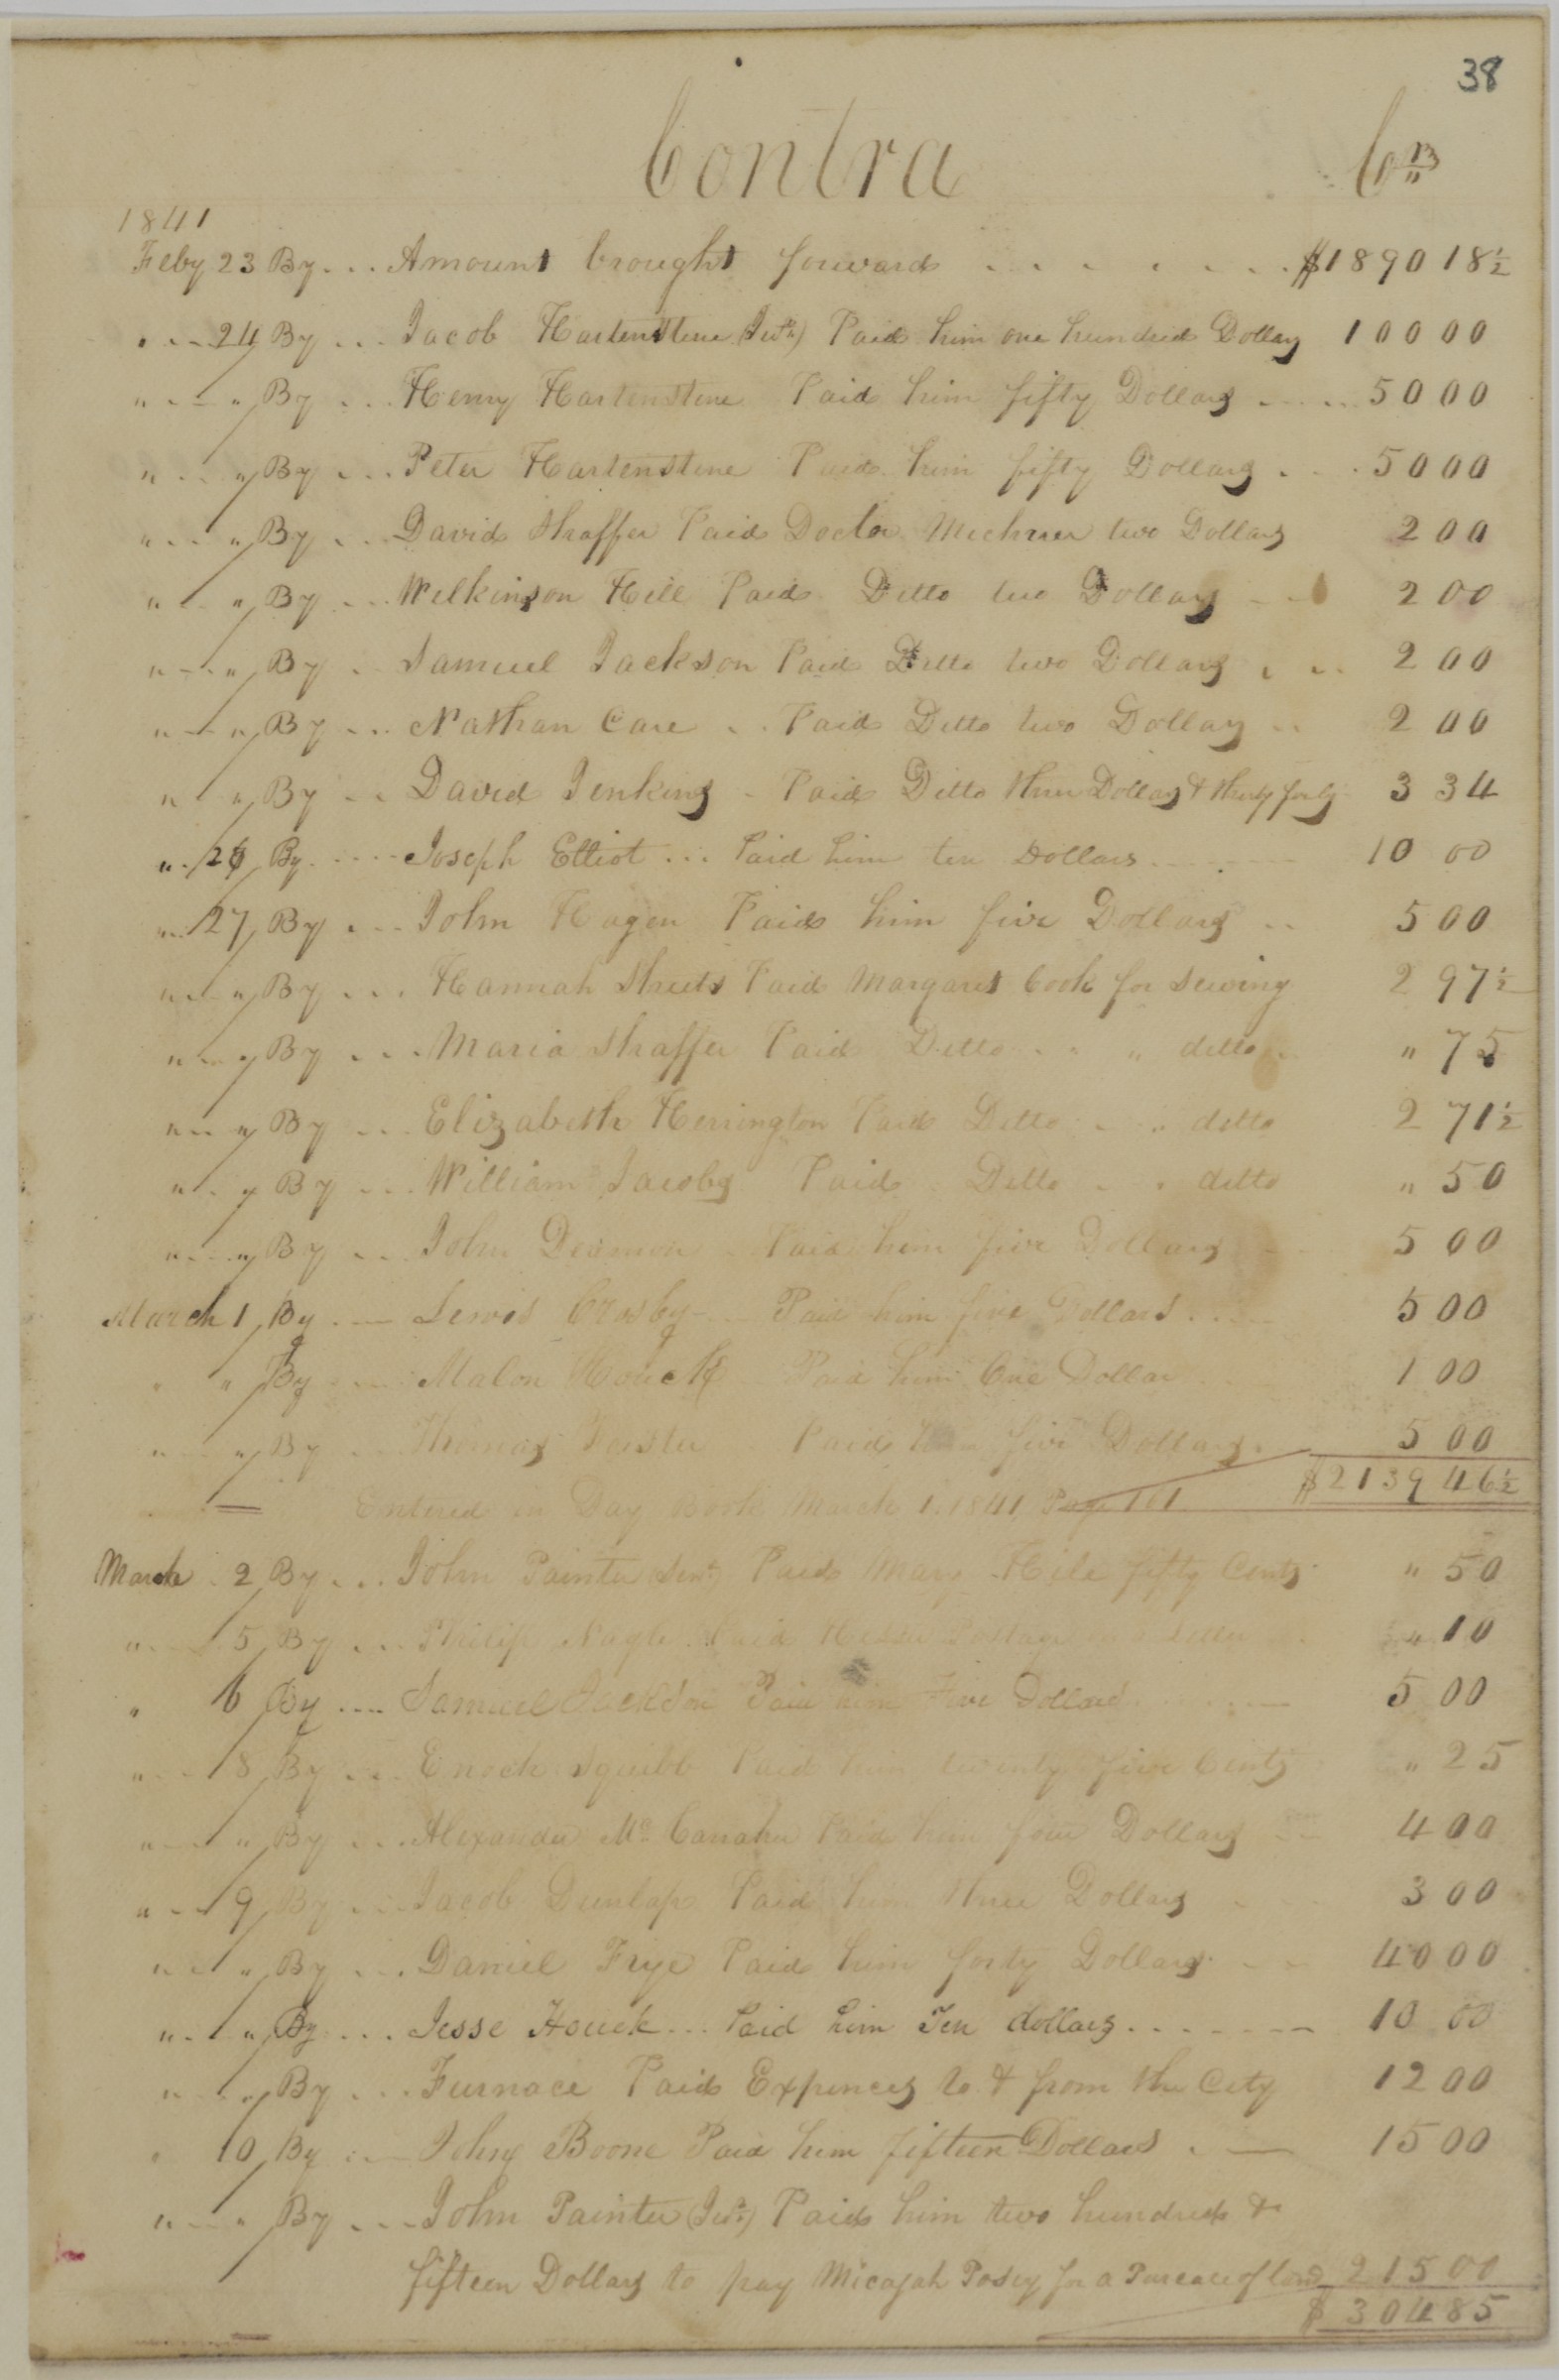 38
Contra Cr
1841
Feby 23 By ... Amount brought forward . . . . . . . $1890 18½
" 24 By ... Jacob Hartenstine (Jnr) Paid him one hundred Dollars 100 00
" " By ... Henry Hartenstine Paid him fifty Dollars 50 00
" " By ... Peter Hartenstine Paid him fifty Dollars 50 00
" " By ... David Shaffer Paid Doctor Michner two Dollars 2 00
" " By ... Wilkinson Hill Paid Ditto two Dollars 2 00
" " By .. Samuel Jackson Paid Ditto two Dollars 2 00
" " By ... Nathan Care .. Paid Ditto two Dollars 2 00
" " By .. David Jenkins - Paid Ditto three Dollars & thirty four 3 34
" 26 By .... Joseph Elliot ... Paid him ten Dollars 10 00
" 27 By ... John Hagen Paid him five Dollars 5 00
" " By ... Hannah Sheets Paid Margaret Cook for Sewing 2 97½
" " By ... Maria Shaffer Paid Ditto .. " ditto " 75
" " By ... Elizabeth Herrington Paid Ditto .. ditto 2 71½
" " By ... William Jacobs Paid Ditto .. ditto " 50
" " By ... John Paid him five Dollars 5 00
March 1 By ... Lewis Crosby Paid him five Dollars 5 00
" " By ... Malon Houck Paid him One Dollar 1 00
" " By ... Thomas Foister Paid him five Dollars 5 00
$2139 46½
Entered in Day Book March 1. 1841 Page 101
March 2 By ... John Painter (Senr) Paid Mary Hile fifty Cents " 50
" 5 By ... Philip Nagle Paid Postage Letter " 10
" 6 By .... Samuel Jackson Paid him Five Dollars 5 00
" 8 By ... Enoch Squibb Paid him twenty five Cents " 25
" " By ... Alexander Mc Canaher Paid him four Dollars 4 00
" 9 By ... Jacob Dunlap Paid him three Dollars 3 00
" " By ... Daniel Frye Paid him forty Dollars 40 00
" " By ... Jesse Houck ... Paid him Ten dollars 10 00
" " By ... Furnace Paid Expences to & from the City 12 00
" 10 By .. John Boone Paid him fifteen Dollars 15 00
" " By ... John Painter (Jnr) Paid him two hundred &
fifteen Dollars to pay Micajah Posey for a Parcel of land 215 00
$ 304 85